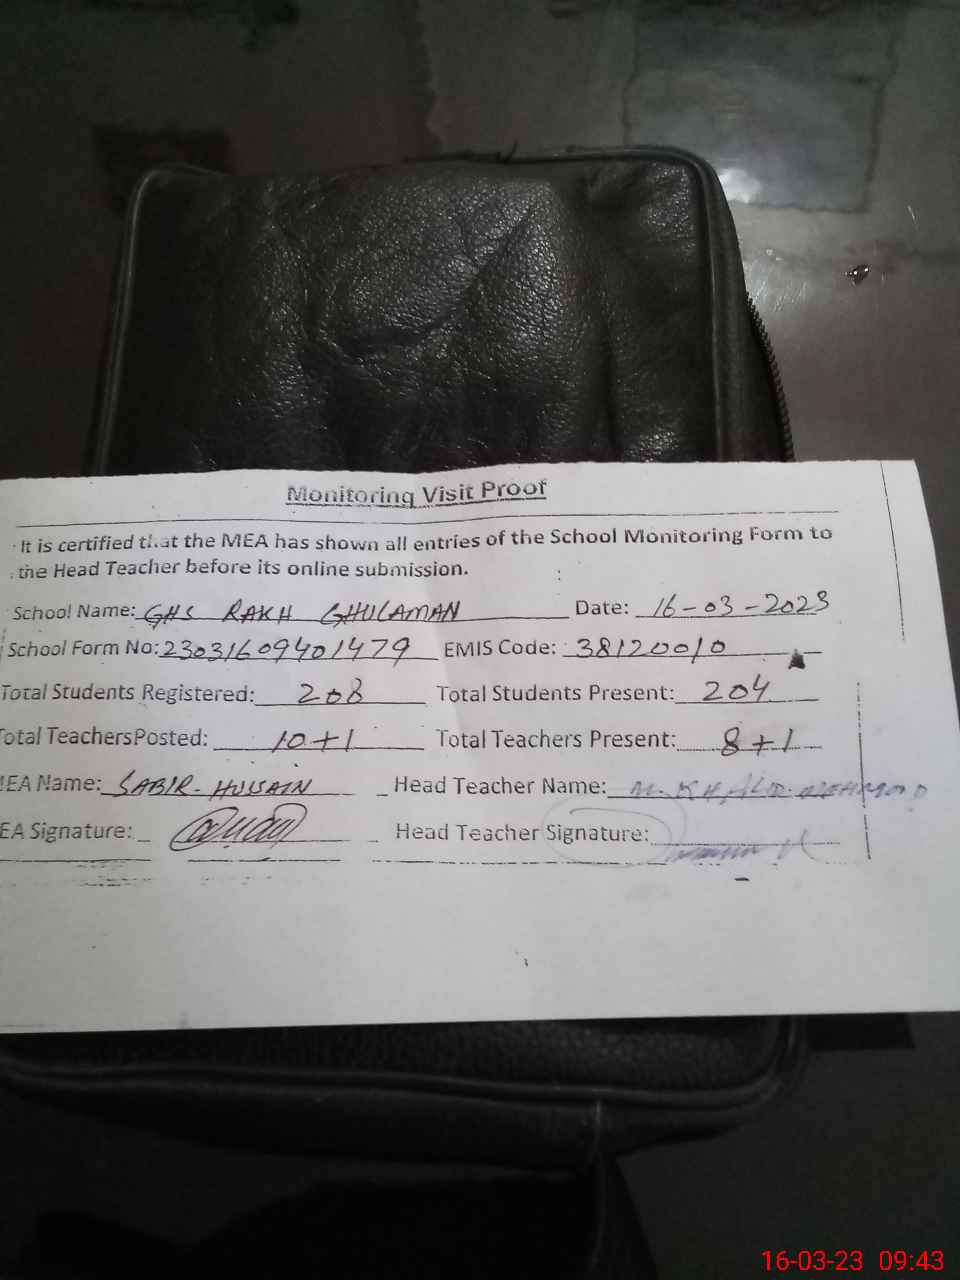 Monitoring Visit Proof
It is certified that the MEA has shown all entries of the School Monitoring Form to
the Head Teacher before its online submission.
School Name: GHS RAKH GHULAMAN Date: 16-03-2023
School Form No: 23031609401479 EMIS Code: 38120010
Total Students Registered: 208 Total Students Present: 204
Total Teachers Posted: 10+1 Total Teachers Present: 8+1
MEA Name: SABIR-HUSSAIN Head Teacher Name: M. KHALID
EA Signature: Head Teacher Signature:
16-03-23 09:43